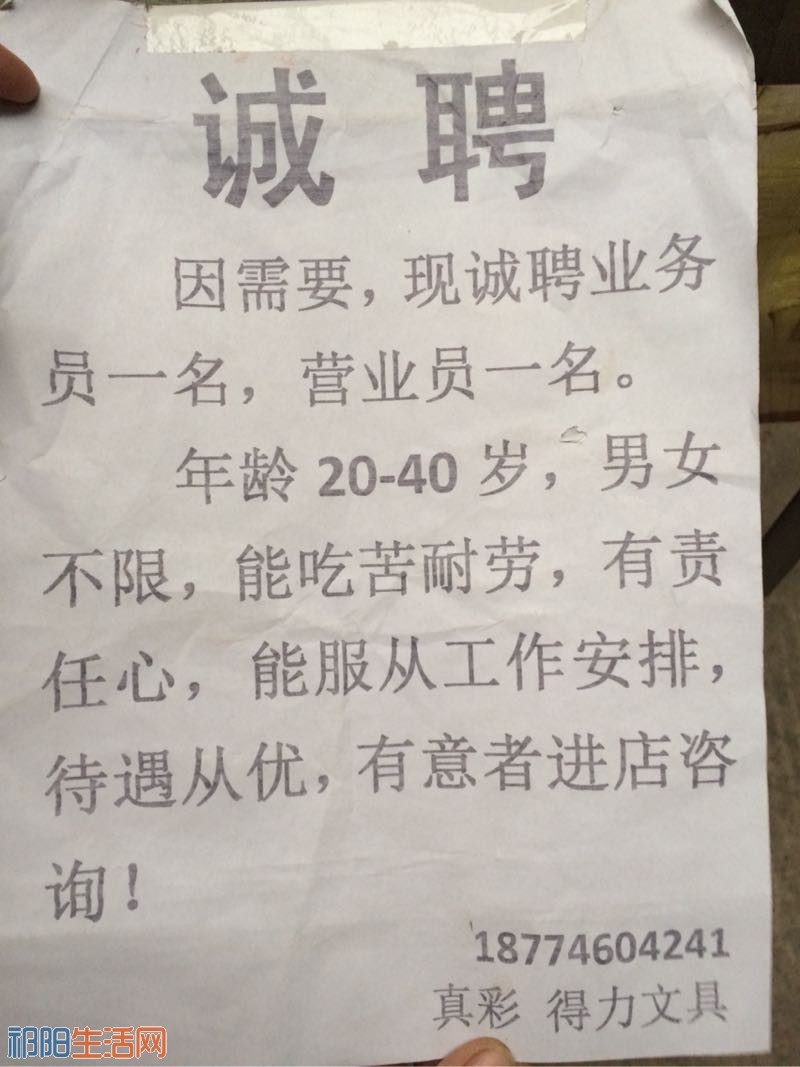 诚 聘
因需要，现诚聘业务
员一名，营业员一名。
年龄 20-40 岁，男女
不限，能吃苦耐劳，有责
任心，能服从工作安排，
待遇从优，有意者进店咨
询！
18774604241
真彩 得力文具
祁阳生活网